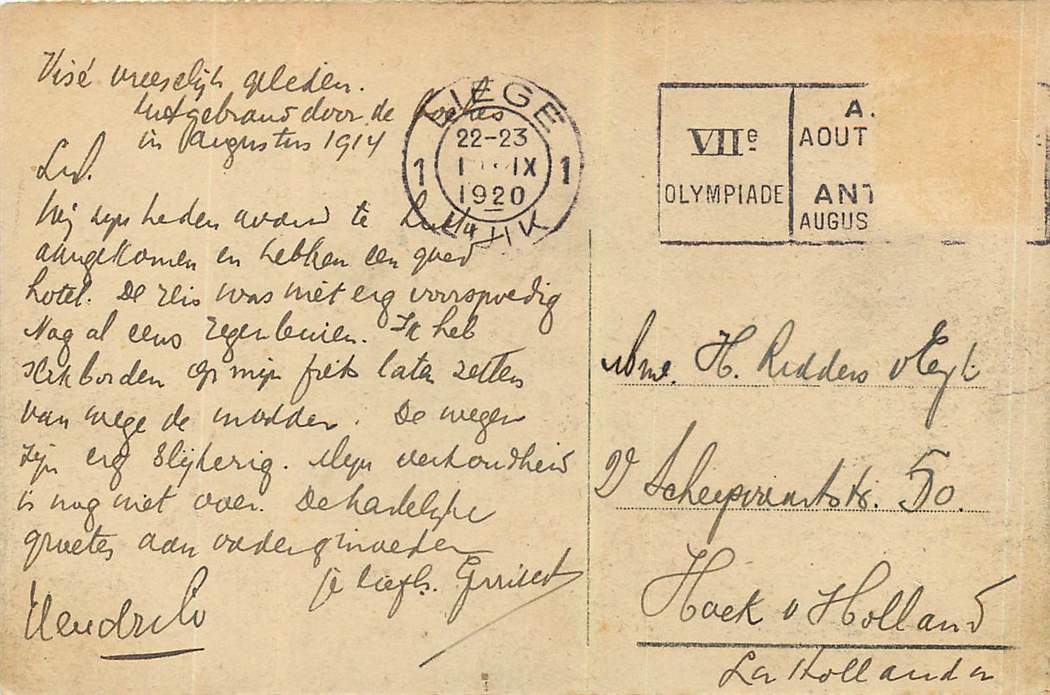 Visé vreeselijk geleden.
Uitgebrand door de Boches
in Augustus 1914
Wij zijn heden avond te Luik
aangekomen en hebben een goed
hotel. De reis was niet erg voorspoedig
Nog al eens regenbuien. Ik heb
slikborden op mijn fiets laten zetten
van wege de modder. De wegen
zijn erg slijkerig. Mijn verkoudheid
is nog niet over. De hartelijke
groeten aan vader & moeder
je liefh. Gerrit
Hendrik
LIÈGE
1 22-23 1
1 IX
1920
LUIK
VIIe
OLYMPIADE
A.
AOUT
ANT
AUGUS
Mme. H. Ridders
Scheepvaartstr. 50.
Hoek v Holland
Hollande